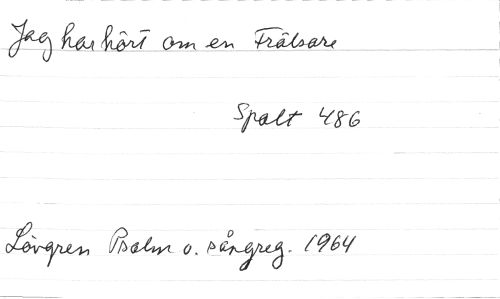 Jag har hört om en Frälsare
Spalt 486
Lövgren Psalm o. sångreg. 1964